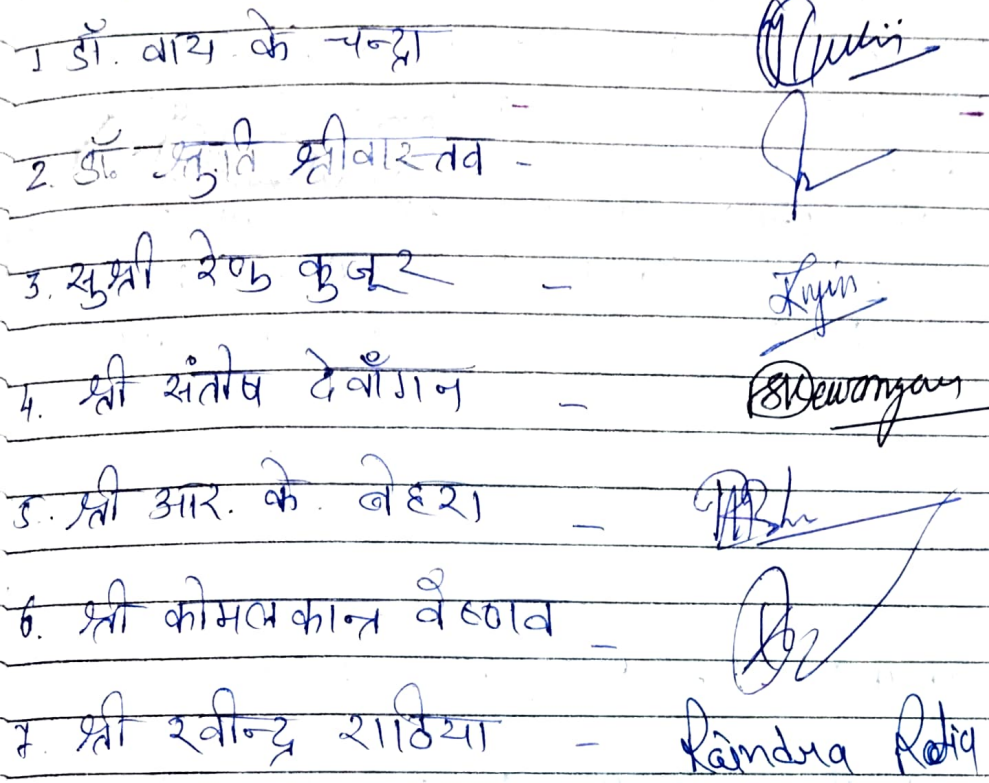 1 डॉ. वाय के चन्द्रा
2. डॉ. श्रुति श्रीवास्तव -
3. सुश्री रेणु कुजूर - Kujur
4. श्री संतोष देवाँगन - SDewangan
5. श्री आर. के. बेहरा -
6. श्री कोमलकान्त वैष्णव -
7. श्री रवीन्द्र राठिया - Ravindra Ratia